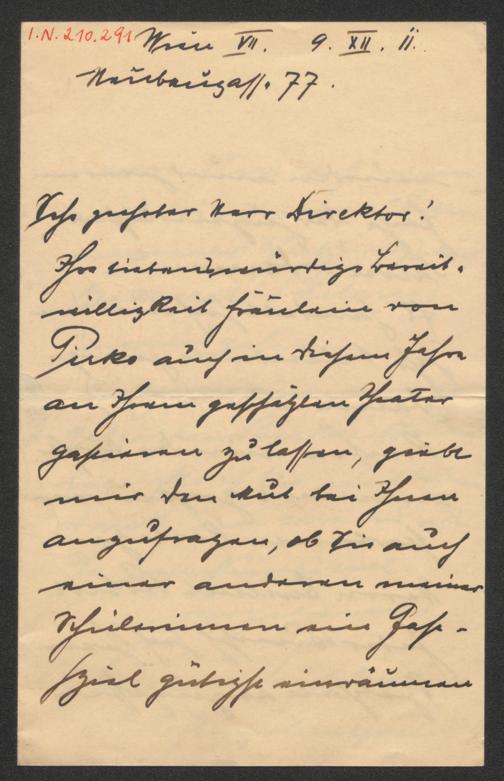 I.N. 210.291
Wien VII. 9. XII. 11.
Neubaugasse 77.
Sehr geehrter Herr Direktor!
Ihre liebenswürdige Bereit-
willigkeit Fräulein von
Pirko auch in diesem Jahre
an Ihrem geschätzten Theater
gastieren zu lassen, giebt
mir den Mut bei Ihnen
anzufragen, ob Sie auch
einer anderen meiner
Schülerinnen ein Gast-
spiel gütigst einräumen